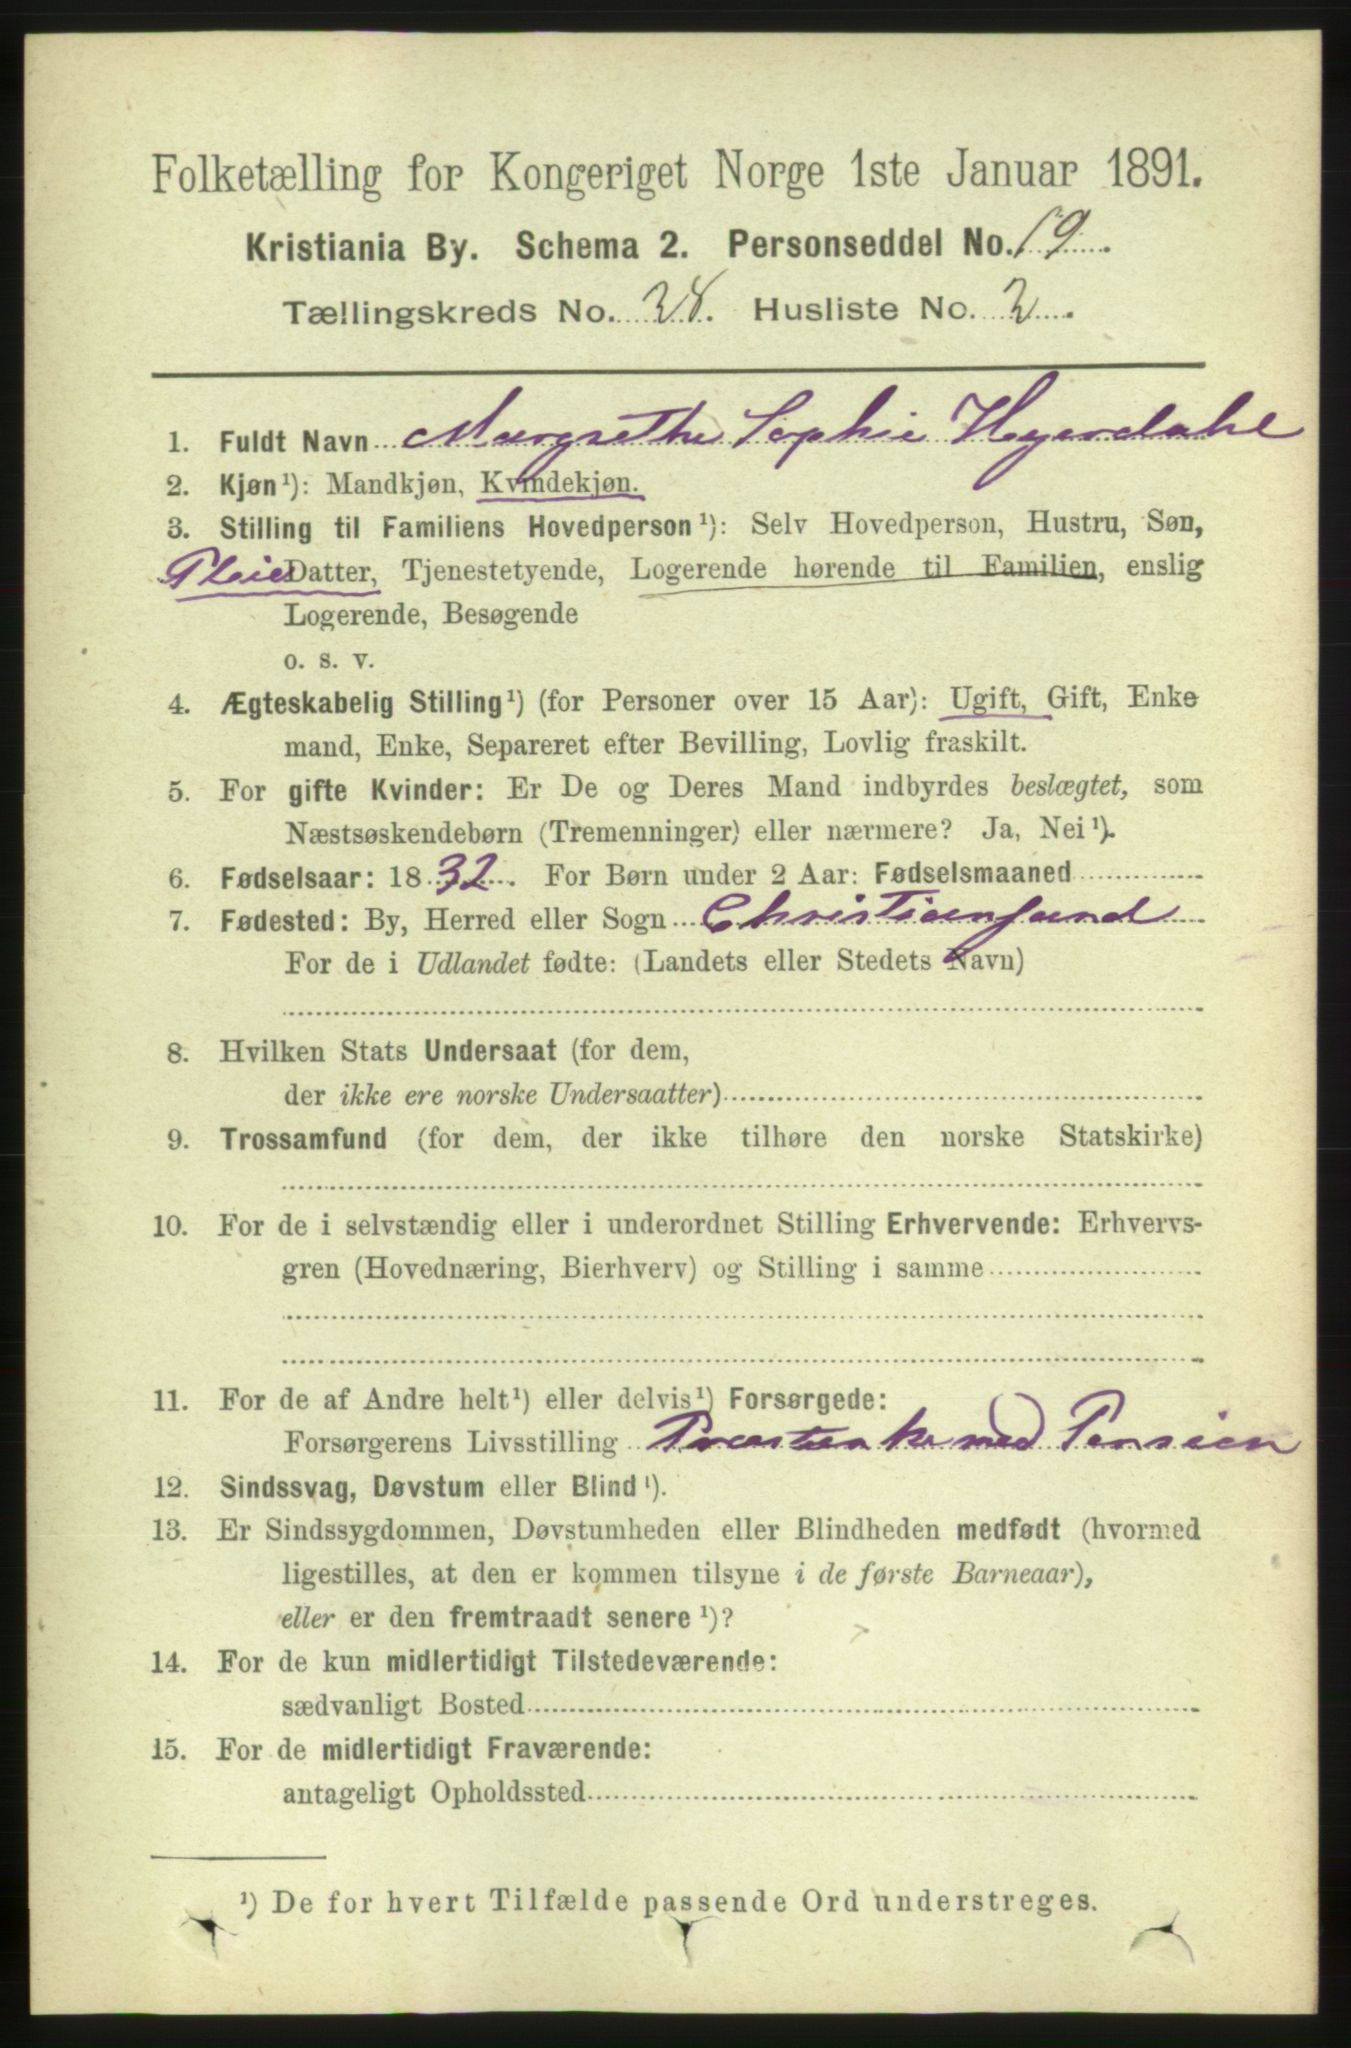 Folketælling for Kongeriget Norge 1ste Januar 1891.
Kristiania By. Schema 2. Personseddel No. 19
Tællingskreds No. 28. Husliste No. 2.
1. Fuldt Navn Margrethe Sophie Hyerdahl
2. Kjøn¹): Mandkjøn, Kvindekjøn.
3. Stilling til Familiens Hovedperson¹): Selv Hovedperson, Hustru, Søn,
Pleie Datter, Tjenestetyende, Logerende hørende til Familien, enslig
Logerende, Besøgende
o. s. v.
4. Ægteskabelig Stilling¹) (for Personer over 15 Aar): Ugift, Gift, Enke
mand, Enke, Separeret efter Bevilling, Lovlig fraskilt.
5. For gifte Kvinder: Er De og Deres Mand indbyrdes beslægtet, som
Næstsøskendebørn (Tremenninger) eller nærmere? Ja, Nei¹).
6. Fødselsaar: 1832. For Børn under 2 Aar: Fødselsmaaned
7. Fødested: By, Herred eller Sogn Christiansund
For de i Udlandet fødte: (Landets eller Stedets Navn)
8. Hvilken Stats Undersaat (for dem,
der ikke ere norske Undersaatter)
9. Trossamfund (for dem, der ikke tilhøre den norske Statskirke)
10. For de i selvstændig eller i underordnet Stilling Erhvervende: Erhvervs-
gren (Hovednæring, Bierhverv) og Stilling i samme
11. For de af Andre helt¹) eller delvis¹) Forsørgede:
Forsørgerens Livsstilling Præstenke med Pension
12. Sindssvag, Døvstum eller Blind¹).
13. Er Sindssygdommen, Døvstumheden eller Blindheden medfødt (hvormed
ligestilles, at den er kommen tilsyne i de første Barneaar),
eller er den fremtraadt senere¹)?
14. For de kun midlertidigt Tilstedeværende:
sædvanligt Bosted
15. For de midlertidigt Fraværende:
antageligt Opholdssted
¹) De for hvert Tilfælde passende Ord understreges.